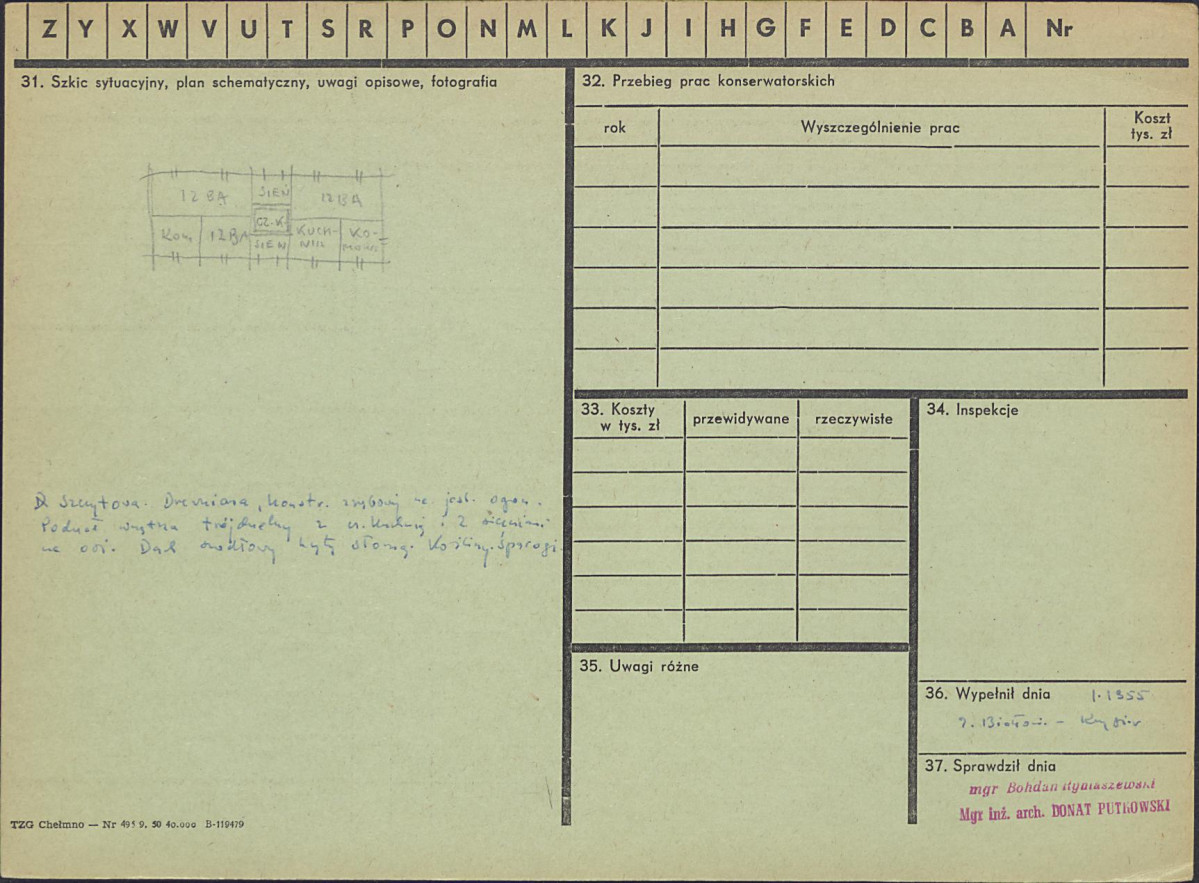 Z Y X W V U T S R P O N M L K J I H G F E D C B A Nr
31. Szkic sytuacyjny, plan schematyczny, uwagi opisowe, fotografia
IZBA SIEŃ IZBA
CZ.K.
Kom. IZBA SIEŃ KUCH-
NIA KO-
MORA
Szczytowa. Drewniana, konstr.
wnętrza trójdzielny z i 2 sieniami
na osi. Dach kryty słomą. Śparogi.
32. Przebieg prac konserwatorskich
rok Wyszczególnienie prac Koszt
tys. zł
33. Koszty
w tys. zł przewidywane rzeczywiste
34. Inspekcje
35. Uwagi różne
36. Wypełnił dnia 1.1955
37. Sprawdził dnia
mgr Bohdan Rymaszewski
Mgr inż. arch. DONAT PUTKOWSKI
TZG Chełmno — Nr 495 9. 50 40.000 B-119479